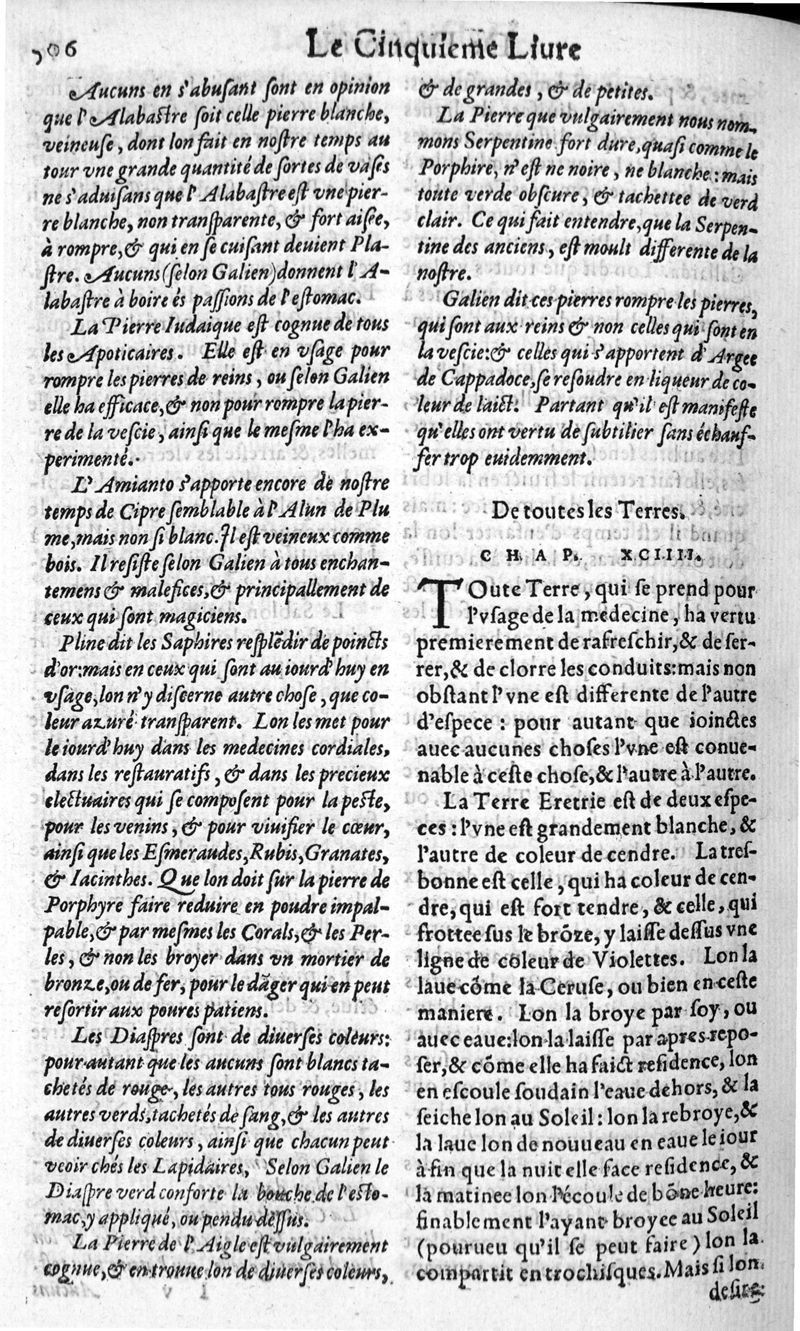 506 Le Cinquieme Liure
Aucuns en s'abuſant ſont en opinion
que l'Alabaſtre ſoit celle pierre blanche,
veineuſe, dont lon fait en noſtre temps au
tour vne grande quantité de ſortes de vaſes
ne s'aduiſans que l'Alabaſtre eſt vne pier-
re blanche, non tranſparente, & fort aiſée,
à rompre, & qui en ſe cuiſant deuient Pla-
ſtre. Aucuns (ſelon Galien) donnent l'A-
labaſtre à boire és paſſions de l'eſtomac.
La Pierre Iudaique eſt cognue de tous
les Apoticaires. Elle eſt en vſage pour
rompre les pierres de reins, ou ſelon Galien
elle ha efficace, & non pour rompre la pier-
re de la veſcie, ainſi que le meſme l'ha ex-
perimenté.
L'Amianto s'apporte encore de noſtre
temps de Cipre ſemblable à l'Alun de Plu
me, mais non ſi blanc. Il eſt veineux comme
bois. Il reſiſte ſelon Galien à tous enchan-
temens & malefices, & principallement de
ceux qui ſont magiciens.
Pline dit les Saphires reſplēdir de poincts
d'or: mais en ceux qui ſont au iourd'huy en
vſage, lon n'y diſcerne autre choſe, que co-
leur azuré tranſparent. Lon les met pour
le iourd'huy dans les medecines cordiales,
dans les reſtauratifs, & dans les precieux
electuaires qui ſe compoſent pour la peſte,
pour les venins, & pour viuifier le cœur,
ainſi que les Eſmeraudes, Rubis, Granates,
& Iacinthes. Que lon doit ſur la pierre de
Porphyre faire reduire en poudre impal-
pable, & par meſmes les Corals, & les Per-
les, & non les broyer dans vn mortier de
bronze, ou de fer, pour le dāger qui en peut
reſortir aux poures patiens.
Les Diaſpres ſont de diuerſes coleurs:
pour autant que les aucuns ſont blancs ta-
chetés de rouge, les autres tous rouges, les
autres verds, tachetés de ſang, & les autres
de diuerſes coleurs, ainſi que chacun peut
veoir chés les Lapidaires, Selon Galien le
Diaſpre verd conforte la bouche de l'eſto-
mac, y appliqué, ou pendu deſſus.
La Pierre de l'Aigle eſt vulgairement
cognue, & en trouue lon de diuerſes coleurs,
& de grandes, & de petites.
La Pierre que vulgairement nous nom-
mons Serpentine fort dure, quaſi comme le
Porphire, n'eſt ne noire, ne blanche: mais
toute verde obſcure, & tachettee de verd
clair. Ce qui fait entendre, que la Serpen-
tine des anciens, eſt moult differente de la
noſtre.
Galien dit ces pierres rompre les pierres,
qui ſont aux reins & non celles qui ſont en
la veſcie: & celles qui s'apportent d'Argee
de Cappadoce, ſe reſoudre en liqueur de co-
leur de laict. Partant qu'il eſt manifeſte
qu'elles ont vertu de ſubtilier ſans échauf-
fer trop euidemment.
De toutes les Terres.
CHAP. XCIIII.
TOute Terre, qui ſe prend pour
l'vſage de la medecine, ha vertu
premierement de rafreſchir, & de ſer-
rer, & de clorre les conduits: mais non
obſtant l'vne eſt differente de l'autre
d'eſpece: pour autant que ioinctes
auec aucunes choſes l'vne eſt conue-
nable à ceſte choſe, & l'autre à l'autre.
La Terre Eretrie eſt de deux eſpe-
ces: l'vne eſt grandement blanche, &
l'autre de coleur de cendre. La treſ-
bonne eſt celle, qui ha coleur de cen-
dre, qui eſt fort tendre, & celle, qui
frottee ſus le brōze, y laiſſe deſſus vne
ligne de coleur de Violettes. Lon la
laue cōme la Ceruſe, ou bien en ceſte
maniere. Lon la broye par ſoy, ou
auec eaue: lon la laiſſe par apres repo-
ſer, & cōme elle ha faict reſidence, lon
en eſcoule ſoudain l'eaue dehors, & la
ſeiche lon au Soleil: lon la rebroye, &
la laue lon de nouueau en eaue le iour
à fin que la nuit elle face reſidence, &
la matinee lon l'écoule de bōne heure:
finablement l'ayant broyee au Soleil
(pourueu qu'il ſe peut faire) lon la
compartit en trochiſques. Mais ſi lon
deſire